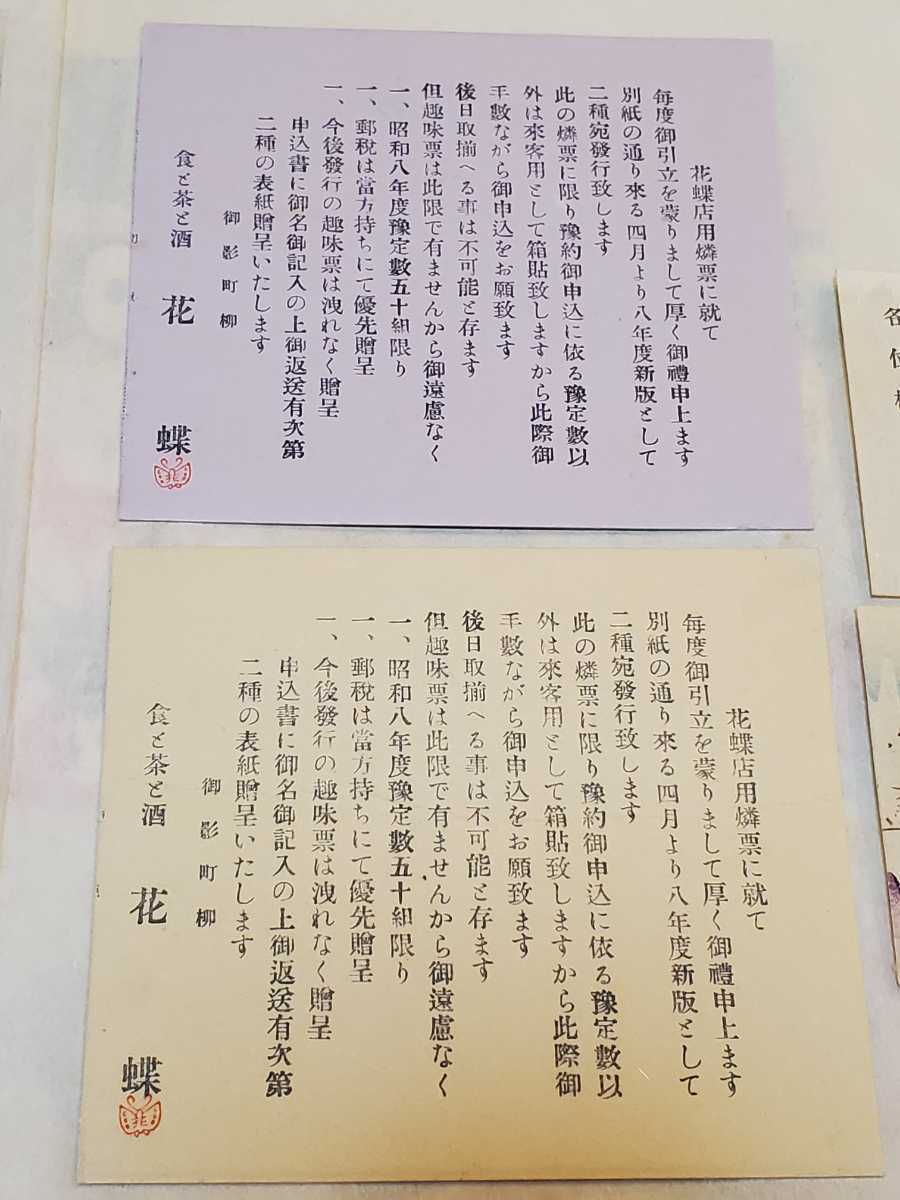 花蝶店用燐票に就て
毎度御引立を蒙りまして厚く御禮申上ます
別紙の通り來る四月より八年度新版として
二種宛發行致します
此の燐票に限り豫約御申込に依る豫定數以
外は來客用として箱貼致しますから此際御
手數ながら御申込をお願致ます
後日取揃へる事は不可能と存ます
但趣味票は此限で有ませんから御遠慮なく
一、昭和八年度豫定數五十組限り
一、郵税は當方持ちにて優先贈呈
一、今後發行の趣味票は洩れなく贈呈
申込書に御名御記入の上御返送有次第
二種の表紙贈呈いたします
御影町柳
食と茶と酒 花蝶
花蝶店用燐票に就て
毎度御引立を蒙りまして厚く御禮申上ます
別紙の通り來る四月より八年度新版として
二種宛發行致します
此の燐票に限り豫約御申込に依る豫定數以
外は來客用として箱貼致しますから此際御
手數ながら御申込をお願致ます
後日取揃へる事は不可能と存ます
但趣味票は此限で有ませんから御遠慮なく
一、昭和八年度豫定數五十組限り
一、郵税は當方持ちにて優先贈呈
一、今後發行の趣味票は洩れなく贈呈
申込書に御名御記入の上御返送有次第
二種の表紙贈呈いたします
御影町柳
食と茶と酒 花蝶
各位